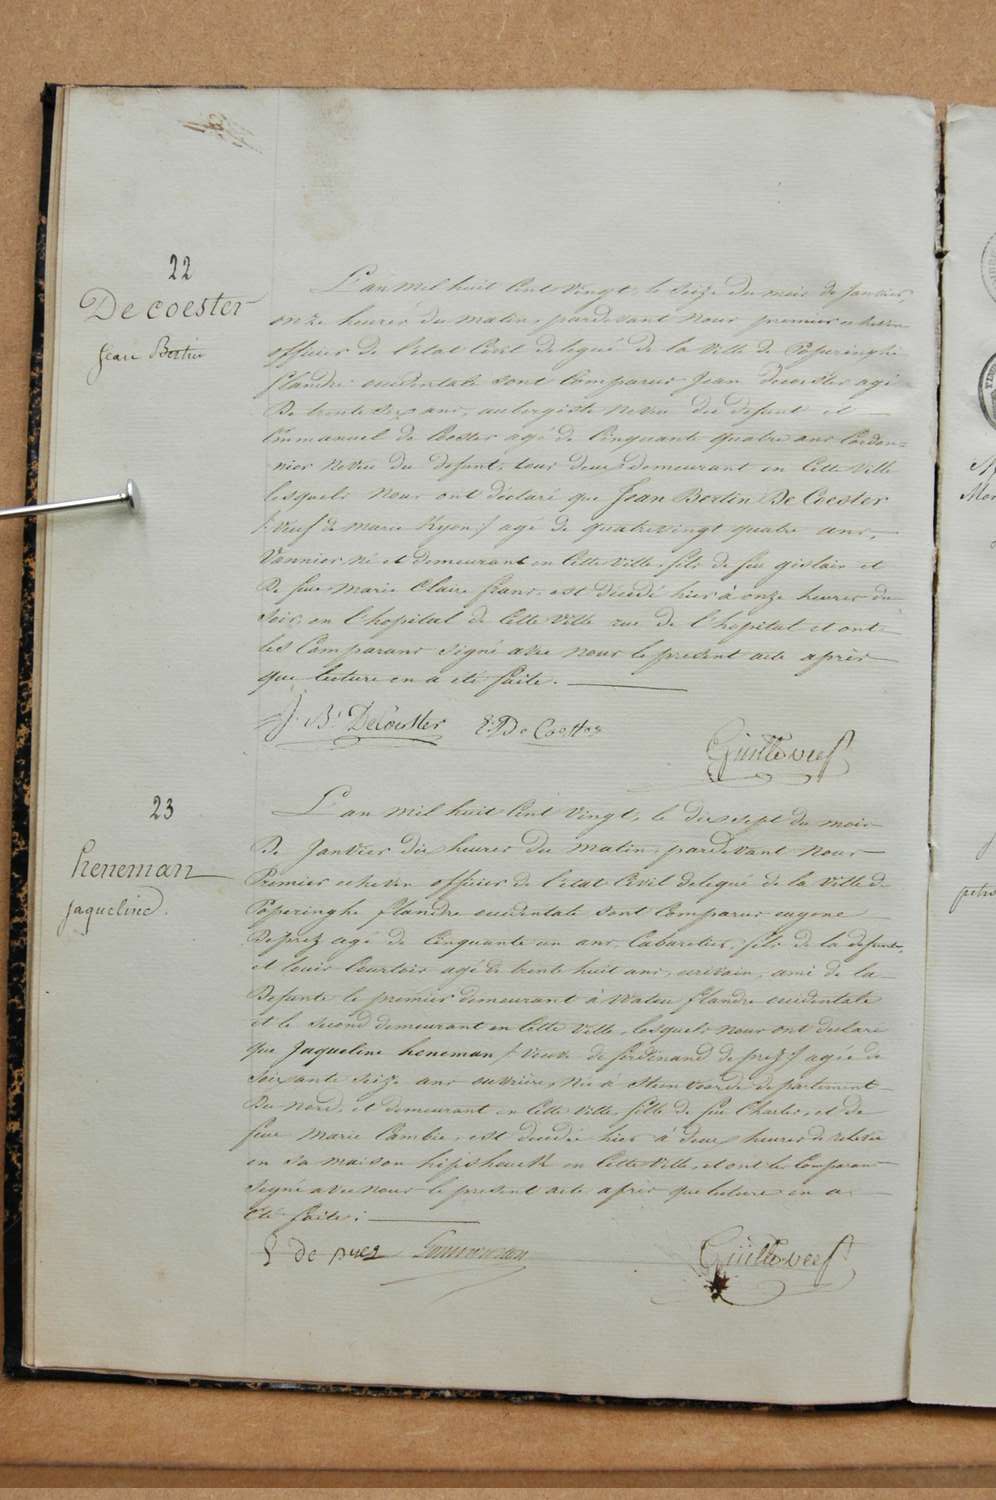 22
De coester
Jean Bertin
L'an mil huit Cent Vingt, le Seize du mois de Janvier,
onze heures du matin, pardevant Nous premier echevin
officier de l'etat Civil delegué de la Ville de Poperinghe
flandre occidentale sont Comparus Jean Decoester agé
De trente six ans, aubergiste neveu du defunt et
Emmanuel de Coester agé de Cinquante quatre ans Cordon=
nier Neveu du defunt, tous deux demeurant en Cette Ville
lesquels Nous ont déclaré que Jean Bertin De Coester
veuf de Marie Ryon agé de quatrevingt quatre ans,
Vannier, né et demeurant en Cette Ville, fils de feu gislain et
De feue Marie Claire frans, est décedé hier à onze heures du
soir, en l'hopital de Cette Ville rue de l'hopital et ont
les Comparans signé avec Nous le present acte après
que lecture en a été faite.
J. B. Decoester E: De Coester
23
heneman
Jaqueline.
L'an mil huit Cent Vingt, le dix sept du mois
De Janvier dix heures du matin, pardevant Nous
Premier echevin officier de l'etat Civil delegué de la Ville de
Poperinghe flandre occidentale sont Comparus eugene
Deprez agé de Cinquante un ans, Cabaretier, fils de la defunte,
et louis Courtois agé de trente huit ans, ecrivain, ami de la
Defunte le premier demeurant à Watou flandre occidentale
et le second demeurant en Cette Ville, lesquels Nous ont declaré
que Jaqueline heneman veuve de ferdinand deprez agée de
soixante seize ans ouvrière, Née à Steenvoorde departement
Du Nord, et demeurant en Cette Ville, fille de feu Charles, et de
feue Marie Cambie, est decedée hier à deux heures de relevée
en sa maison en Cette Ville, et ont les Comparans
signé avec nous le present acte après que lecture en a
été faite.